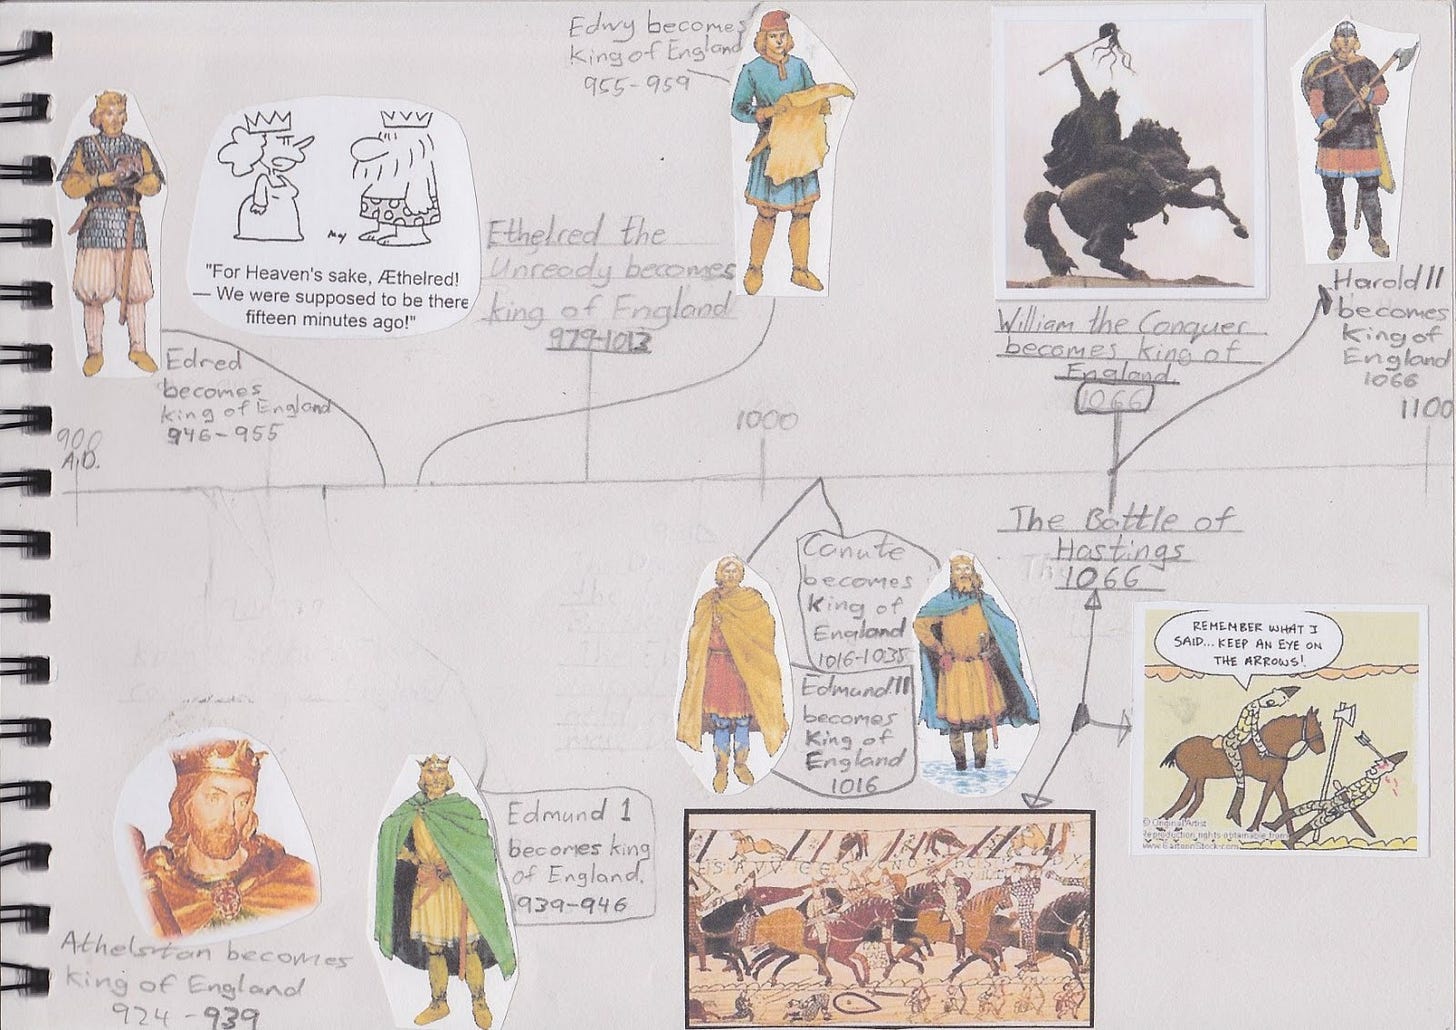 Edwy becomes
king of England
955-959
"For Heaven's sake, Æthelred!
— We were supposed to be there
fifteen minutes ago!"
Ethelred the
Unready becomes
king of England
979-1013
Edred
becomes
king of England
946-955
William the Conquer
becomes king of
England
1066
Harold II
becomes
King of
England
1066
900
A.D.
1000
1100
The Battle of
Hastings
1066
Canute
becomes
king of
England
1016-1035
Edmund II
becomes
King of
England
1016
REMEMBER WHAT I
SAID... KEEP AN EYE ON
THE ARROWS!
© Original Artist
Reproduction rights obtainable from
www.CartoonStock.com
Edmund 1
becomes king
of England.
939-946
Athelstan becomes
king of England
924-939